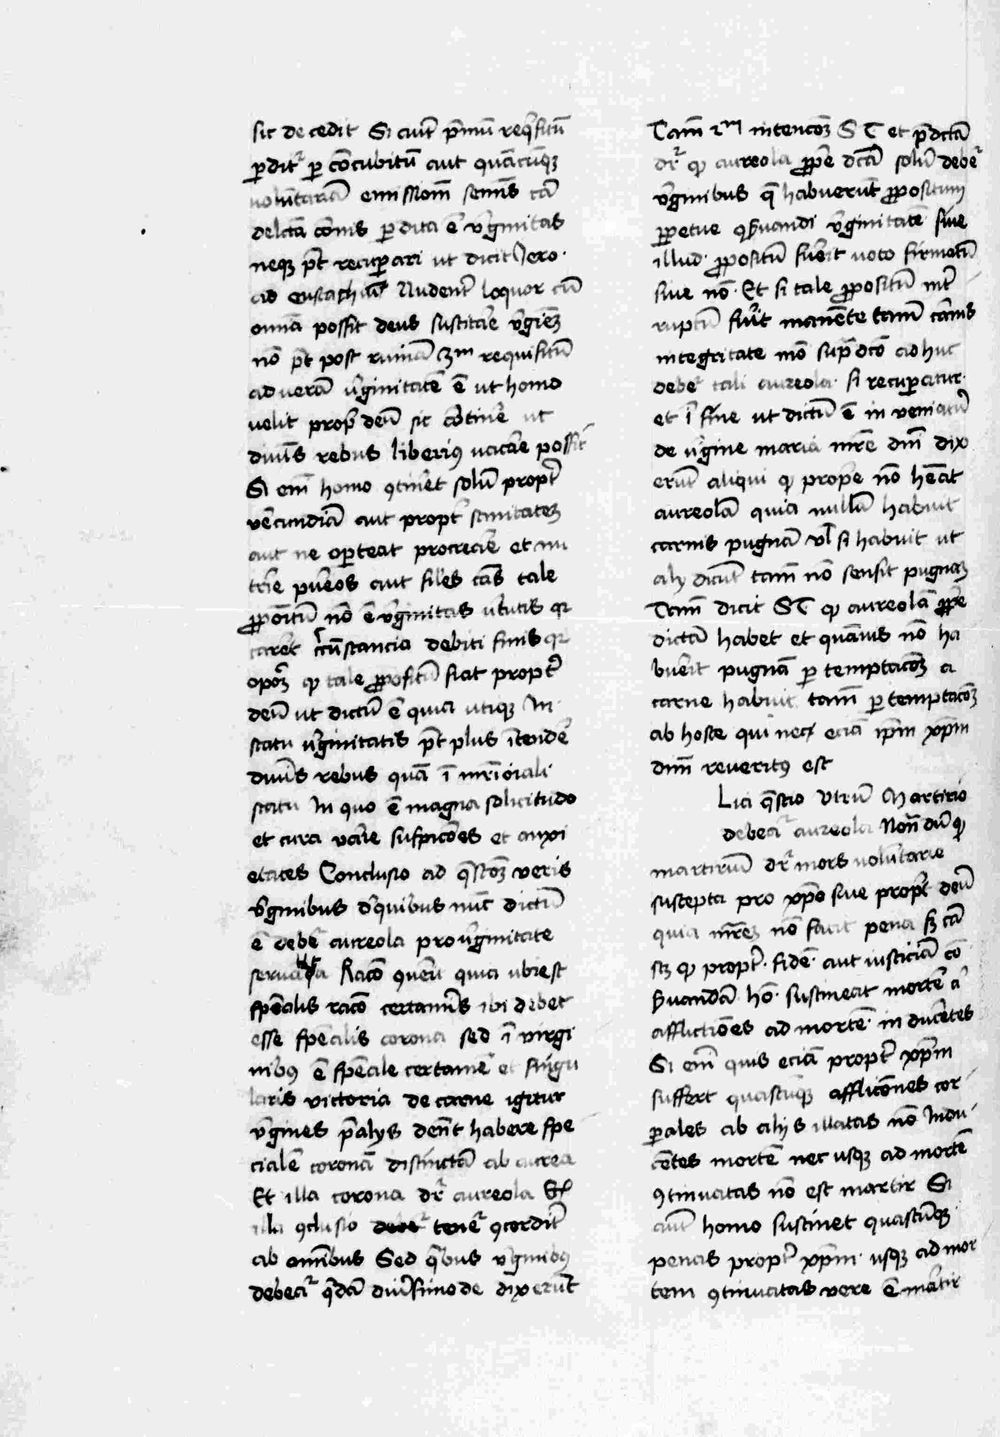 sic de cedit Si aūt p̄mū req̄sitū
ꝑdit᷑ ꝑ cōcubitū aut quācūqꝫ
volūtariā emissionē semīs cā
delctā cōnis ꝑdita ē v̄ginitas
neqꝫ pt̄ recuꝑari ut dicit Jero·
ad eustachiū Audent᷑ loquor cū
omīa possit deus suscitāe v̄giēꝫ
nō pt̄ post ruinā 3m requisitū
ad verā v̄ginitatē ē ut homo
velit propt̄ deū sic cōtinē ut
diuīs rebus liberiꝰ vacāe possit
Si enī homo ꝯtinet solū propt̄
vēcundiā aut propt̄ sanitateꝫ
aut ne oꝑteat procreāe et nu
trīe pueros aut files cās tale
ꝓpoītū nō ē v̄ginitas v̄tutis qꝛ
caret cͥcūstancia debiti finis qꝛ
opoꝫ ꝙ tale ꝓpositū fiat propt̄
deū ut dictū ē quia utiqꝫ In
statu v̄ginitatis pt̄ plus ītendē
diuīs rebus quā ī mr̄ioīali
statu In quo ē magna solicitudo
et cura varīe suspicōes et anxi
etates Conclusio ad q̄stōꝫ veris
v̄ginibus d̄ quibus nūc dictū
ē debet᷑ aureola pro v̄ginitate
seruata Racō ꝯueīs quia ubi est
spēalis racō certaminīs ibi debet
esse spēalis corona sed ī virgi
nibꝰ ē spēale certamē et singu
laris victoria de carne igitur
v̄gines p̄ alijs dent̄ habere spe
cialē coronā distinctā ab aurea
Et illa corona dr᷑ aureola Et
illa ꝯclusio tenet᷑ ꝯcordit᷑
ab omībus Sed q̄bus v̄ginibꝰ
debeat᷑ q̄dā diuersimode dixerūt
Tam̄ 2m intencōꝫ S T et p̄dctā
dr᷑ ꝙ aureola ꝓp̄e dcā solū debet᷑
v̄ginibus q̄ habuerūt ꝓpositum
ꝑpetue ꝯseruandi v̄ginitatē siue
illud ꝓpositū fuerit voto firmatū
siue nō· Et si tale ꝓpositū int̄
ruptū fuit manente tam̄ carnis
integritate mō sup̄dcō adhuc
debet᷑ tali aureola· si recuꝑatur·
et ī fine ut dictū ē in veniatur
de v̄gine maria mr̄e dnī dix
erūt aliqui ꝙ proprie nō heāt
aureolā quia nullā habuit
carnis pugnā vl̄ si habuit ut
alij dicūt tam̄ nō sensit pugnaꝫ
Tam̄ dicit S T ꝙ aureolā ꝓp̄e
dictā habet et quāuis nō ha
buerit pugnā ꝑ temptacōꝫ a
carne habuit tam̄ ꝑ temptacōꝫ
ab hoste qui nec eciā ip̄m xp̄m
dnm̄ reueritꝰ est
Lia q̄stio vtrū Martirio
debeat᷑ aureola Nōndū ꝙ
martiriū dr᷑ mors volūtarie
suscepta pro xp̄o siue propt̄ deū
quia mr̄eꝫ nō facit pena sꝫ cā
sꝫ ꝙ propt̄· fidē· aut iusticiā cō
seruandā hō· sustineat mortē a᷑
afflictiōes ad mortē· in ducētes
Si enī quis eciā propt̄ xp̄m
suffert quascūqꝫ afflicōnes cor
ꝑales ab alijs illatas nō Indu
cētes mortē nec usqꝫ ad mortē
ꝯtinuatas nō est martir Si
aut̄ homo sustinet quascūqꝫ
penas propt̄ xp̄m· usqꝫ ad mor
tem ꝯtinuatas vere ē martir